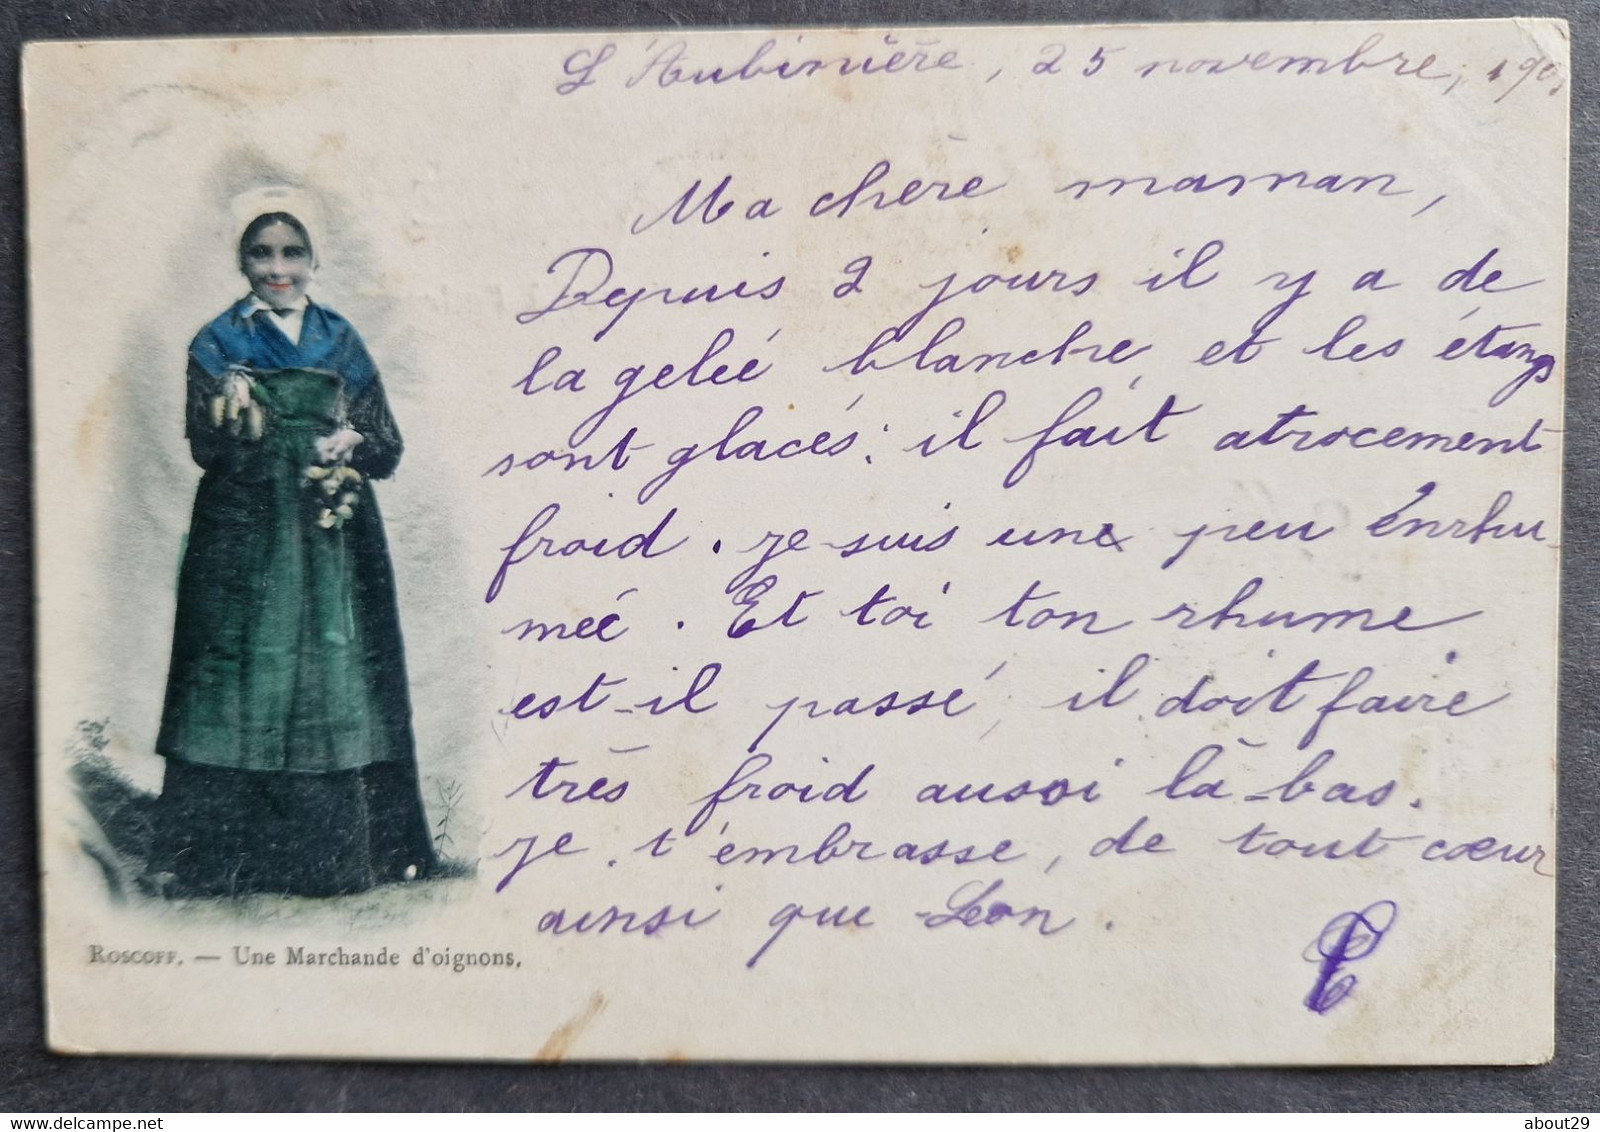 L'Aubinière, 25 novembre, 190
Ma chère maman,
Depuis 2 jours il y a de
la gelée blanche, et les étangs
sont glacés: il fait atrocement
froid. je suis une peu énrhu-
méé. Et toi ton rhume
est-il passé, il doit faire
très froid aussi là-bas.
je t'émbrasse, de tout cœur
ainsi que Léon.
ROSCOFF. — Une Marchande d'oignons.
delcampe.net
about29